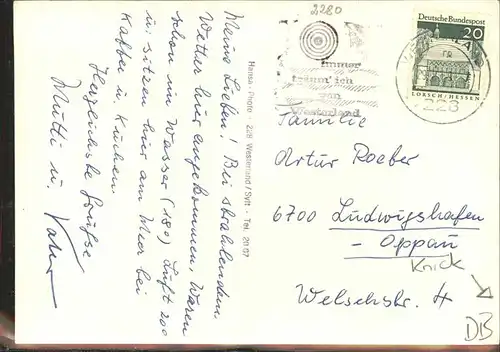 Meine Lieben! Bei strahlendem
Wetter hier angekommen, Waren
schon im Wasser (18°) Luft 20°
u. sitzen hier am Meer bei
Kaffee u. Kuchen.
Herzlichste Grüße
Mutti u. Vater
Hansa-Photo · 228 Westerland/Sylt - Tel. 20 07
2280
immer
träum' ich
von
Westerland
Deutsche Bundespost
20
LORSCH/HESSEN
228
Familie
Artur Roeber
6700 Ludwigshafen
- Oppau
Knick
Welschstr. 4
DB